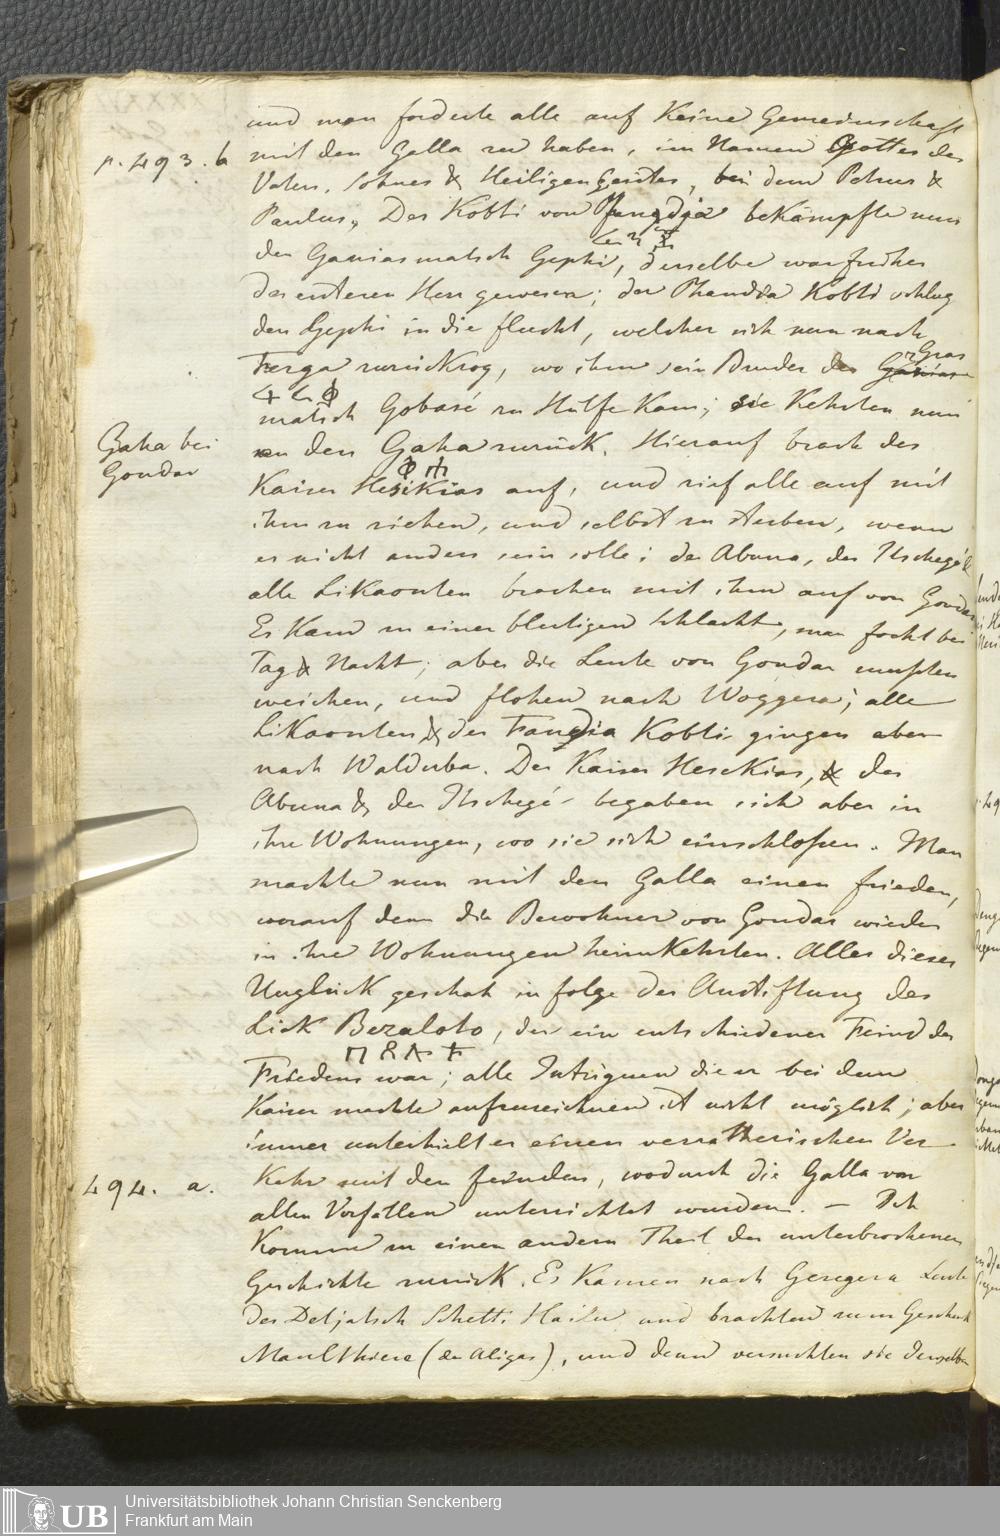 und man forderte alle auf Keine Gemeinschaft
p. 493. b
mit den Galla zu haben, im Namen Gottes des
Vaters, Sohnes & Heiligen Geistes, bei dem Petrus &
Paulus. Der Kobti von bekämpfte nun
den Ganiasmatsch Gephi, derselbe war früher
des ersteren Herr gewesen; der Kobti schlug
den Gephi in die flucht, welcher sich nun nach
Ferga zurückzog, wo ihm sein Bruder der Gras
matsch Gobasé zu Hülfe Kam; sie Kehrten nun
Gaha bei
Gondar
an den Gaha zurück. Hierauf brach der
Kaiser Hesikias auf, und rief alle auf mit
ihm zu ziehen, und selbst zu sterben, wenn
es nicht anders sein solle; der Abuna, der Itschegé &
alle Likaonten brachen mit ihm auf von Gondar
Es Kam zu einer blutigen Schlacht, man focht bei
Tag & Nacht; aber die Leute von Gondar mußten
weichen, und flohen nach Woggera; alle
Likaonten & der Kobti gingen aber
nach Walduba. Der Kaiser Hesekias, & der
Abuna & der Itschegé begaben sich aber in
ihre Wohnungen, wo sie sich einschloßen. Man
machte nun mit den Galla einen frieden,
worauf denn die Bewohner von Gondar wieder
in ihre Wohnungen heimkehrten. Alles dieses
Unglück geschah in folge der Anstiftung des
Lick Bezaloto, der ein entschiedener Feind des
Friedens war; alle Intriguen die er bei dem
Kaiser machte aufzuzeichnen ist nicht möglich; aber
immer unterhielt er einen verrätherischen Ver-
494. a.
Kehr mit den feinden, wodurch die Galla von
allen Vorfällen unterrichtet wurden. — Ich
Komme zu einem andern Theil der unterbrochenen
Geschichte zurück. Es Kamen nach Geregera Leute
des Detjatsch Schetti Hailu und brachten zum Geschenk
Maulthiere (der Aligas), und dann versuchten sie denselben
UB
Universitätsbibliothek Johann Christian Senckenberg
Frankfurt am Main